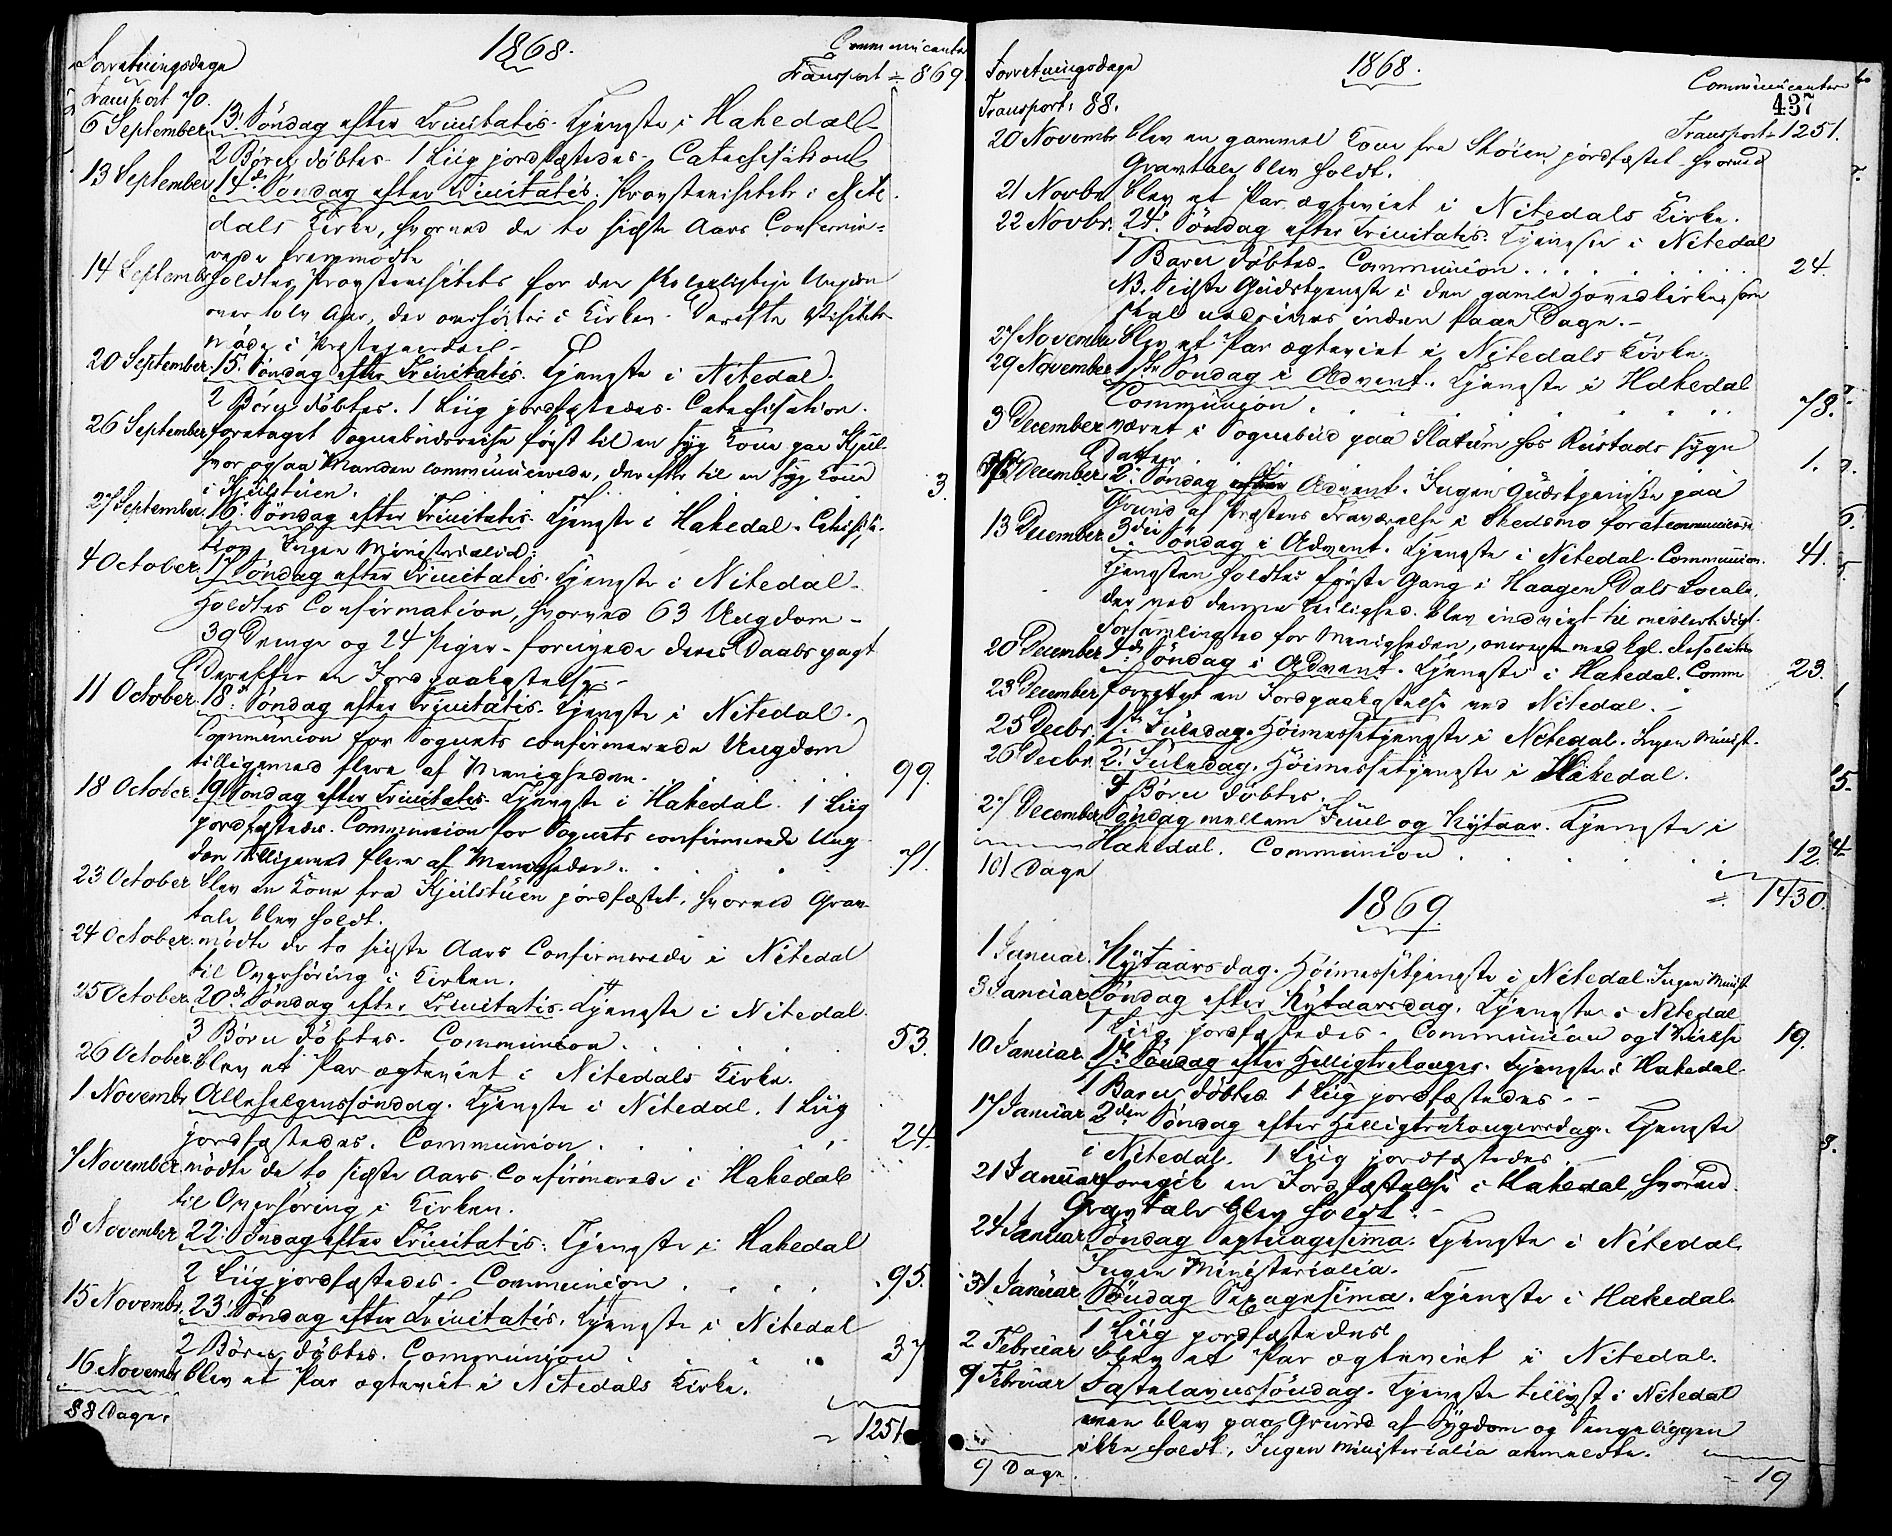 1868.
Communicanter
Forretningsdage
Transport = 869
Transport 70.
6 September 13. Søndag efter Trinitatis. Tjeneste i Hakedal
2 Børn døbtes. 1 Liig jordfæstedes. Catechisation
13 September 14de Søndag efter Trinitatis. Provstevisitats i Nite
dals Kirke, hvorved de to sidste Aars Confirme-
rede fremmødte
14 September holdtes Provstevisitats for den Ungdom
over tolv Aar, der overhørtes i Kirken. Derefter Visitats-
møde i Præstegaarden
20 September 15. Søndag efter Trinitatis. Tjeneste i Nitedal.
2 Børn døbtes. 1 Liig jordfæstedes. Catechisation.
26 September foretaget Sognebudsreise først til en syg Kone paa Kjul-
hvor ogsaa Manden communicerede, derefter til en syg Kone
i Kjulstuen. . . . 3.
27 September 16. Søndag efter Trinitatis. Tjeneste i Hakedal. Catechisa-
tion Ingen Ministerialia.
4 October. 17 Søndag efter Trinitatis. Tjeneste i Nitedal.
Holdtes Confirmation, hvorved 63 Ungdom -
39 Drenge og 24 Piger - fornyede deres Daabspagt
Derefter en Jordpaakastelse. -
11 October 18. Søndag efter Trinitatis. Tjeneste i Nitedal.
Communion for Sognets confirmerede Ungdom
tilligemed flere af Menigheden. . . . 99.
18 October 19 Søndag efter Trinitatis. Tjeneste i Hakedal. 1 Liig
jordfæstedes. Communion for Sognets confirmerede Ung
dom tilligemed flere af Menigheden. . . . 71.
23 October blev en Kone fra Kjulstuen jordfæstet, hvorved Grav-
tale blev holdt.
24 October. mødte de to sidste Aars Confirmerede i Nitedal
til Overhøring i Kirken.
25 October 20de Søndag efter Trinitatis. Tjeneste i Nitedal
3 Børn døbtes. Communion. . . . 53.
26 October blev et Par ægteviet i Nitedals Kirke.
1 Novembr Allehelgenssøndag. Tjeneste i Nitedal. 1 Liig
jordfæstedes. Communion . . . 24.
7 November. mødte de to sidste Aars Confirmerede i Hakedal
til Overhøring i Kirken.
8 November 22. Søndag efter Trinitatis. Tjeneste i Hakedal
2 Liig jordfæstedes. Communion . . . 95.
15 Novembr. 23. Søndag efter Trinitatis. Tjeneste i Nitedal
2 Børn døbtes. Communion . . . 37
16 Novembr blev et Par ægteviet i Nitedals Kirke.
88 Dage.
= 1251
Forretningsdage
1868.
Communicanter
437
Transport: 88.
Transport = 1251.
20 Novembr blev en gammel Kone fra Skøien jordfæstet hvorved
Gravtale blev holdt.
21 Novbr. blev et Par ægteviet i Nitedals Kirke.
22 Novbr. 24. Søndag efter Trinitatis. Tjeneste i Nitedal
1 Barn døbtes. Communion . . . 24.
NB. Sidste Gudstjeneste i den gamle Hovedkirke, som
skal nedrives inden faae Dage. -
27 Novembr blev et Par ægteviet i Nitedals Kirke.
29 November 1ste Søndag i Advent. Tjeneste i Hakedal
Communion . . . 78.
3 December været i Sognebud paa Slatum hos Rustads syge
Datter . . . 1.
6 December 2. Søndag Advent. Ingen Gudstjeneste paa
Grund af Præstens Fraværelse i Skedsmo for at communicere
13 December 3die Søndag i Advent. Tjeneste i Nitedal. Communion. 41.
Tjenesten holdtes første Gang i Haagen Dals Locale,
der ved denne Leilighed blev indviet til midlertidigt
Forsamlingssted for Menigheden, overensst. med kgl. Resolution
20 December 4de Søndag i Advent. Tjeneste i Hakedal. Comm 23.
23 December forrettet en Jordpaakastelse ved Nitedal. -
25 Decbr. 1ste Juledag. Høimessetjeneste i Nitedal. Ingen Minist.
26 Decbr. 2. Juledag. Høimessetjeneste i Hakedal.
9 Børn døbtes.
27 December Søndag mellem Juul og Nytaar. Tjeneste i
Hakedal. Communion . . . 12.
101 Dage
= 1430.
1869.
1 Januar. Nytaarsdag. Høimessetjeneste i Nitedal. Ingen Minist
3 Januar Søndag efter Nytaarsdag. Tjeneste i Nitedal
1 Liig jordfæstedes. Communion og 1 Vielse 19.
10 Januar 1ste Søndag efter Helligtrekonger. Tjeneste i Hakedal.
1 Barn døbtes. 1 Liig jordfæstedes. -
17 Januar 2den Søndag efter Helligtrekongersdag. Tjeneste
i Nitedal. 1 Liig jordfæstedes.
21 Januar foregik en Jordfæstelse i Hakedal, hvorved
Gravtale blev holdt. -
24 Januar Søndag Septuagesima. Tjeneste i Nitedal.
Ingen Ministerialia.
31 Januar Søndag Sexagesima. Tjeneste i Hakedal.
1 Liig jordfæstedes
2 Februar blev et Par ægteviet i Nitedal.
9 Februar Fastelavnssøndag. Tjeneste tillyst i Nitedal
men blev paa Grund af Sygdom og Sengeliggen
ikke holdt. Ingen Ministerialia anmeldte.
9 Dage.
= 19